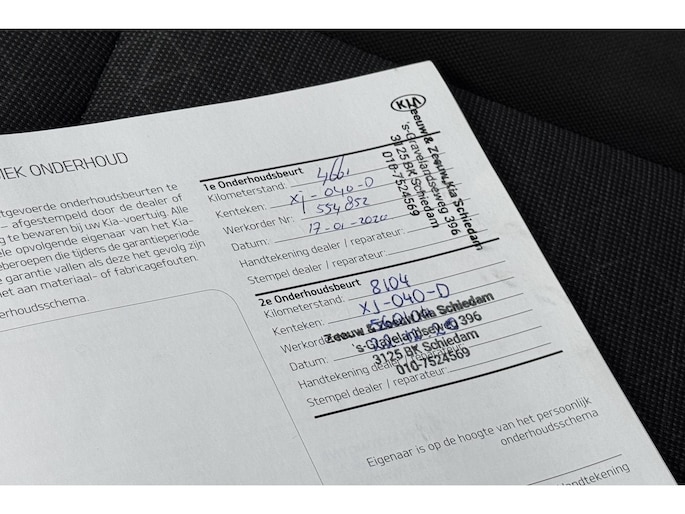 IEK ONDERHOUD
tgevoerde onderhoudsbeurten te
– afgestempeld door de dealer of
g te bewaren bij uw Kia-voertuig. Alle
ele opvolgende eigenaar van het Kia-
beroepen die tijdens de garantieperiode
e garantie vallen als deze het gevolg zijn
et aan materiaal- of fabricagefouten.
erhoudsschema.
1e Onderhoudsbeurt
Kilometerstand:
Kenteken: XJ-040-D
Werkorder Nr: 554852
Datum: 17-01-2020
Handtekening dealer / reparateur:
Stempel dealer / reparateur:
KIA
Zeeuw & Zeeuw Kia Schiedam
's-Gravelandseweg 396
3125 BK Schiedam
010-7524569
2e Onderhoudsbeurt
Kilometerstand: 8104
Kenteken: XJ-040-D
Datum:
Handtekening dealer / reparateur:
Stempel dealer / reparateur:
Zeeuw & Zeeuw Kia Schiedam
's-Gravelandseweg 396
3125 BK Schiedam
010-7524569
Eigenaar is op de hoogte van het persoonlijk
onderhoudsschema
Handtekening